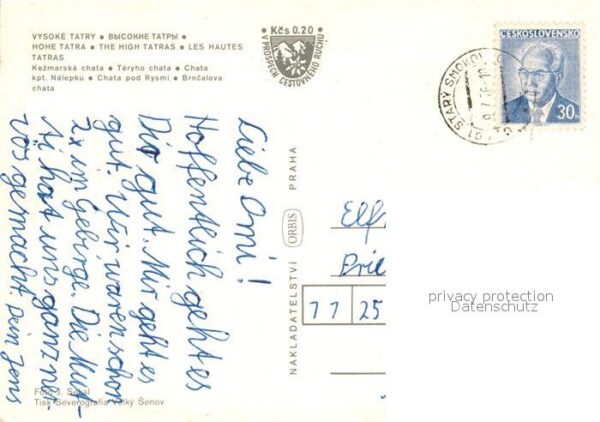 VYSOKÉ TATRY • ВЫСОКИЕ ТАТРЫ •
HOHE TATRA • THE HIGH TATRAS • LES HAUTES
TATRAS
Kežmarská chata • Téryho chata • Chata
kpt. Nálepku • Chata pod Rysmi • Brnčalova
chata
Kčs 0.20
V PROSPĚCH CESTOVNÉHO RUCHU
ČESKOSLOVENSKO
30 h
STARÝ SMOKOVEC
Liebe Omi!
Hoffentlich geht es
Dir gut. Mir geht es
gut. Wir waren schon
2x im Gebirge. Die Mut-
ti hat uns ganz ner-
vös gemacht. Dein Jens
NAKLADATELSTVÍ ORBIS PRAHA
Elf
Prie
7 7 25
privacy protection
Datenschutz
Foto J.
Tisk Severografia Velký Šenov